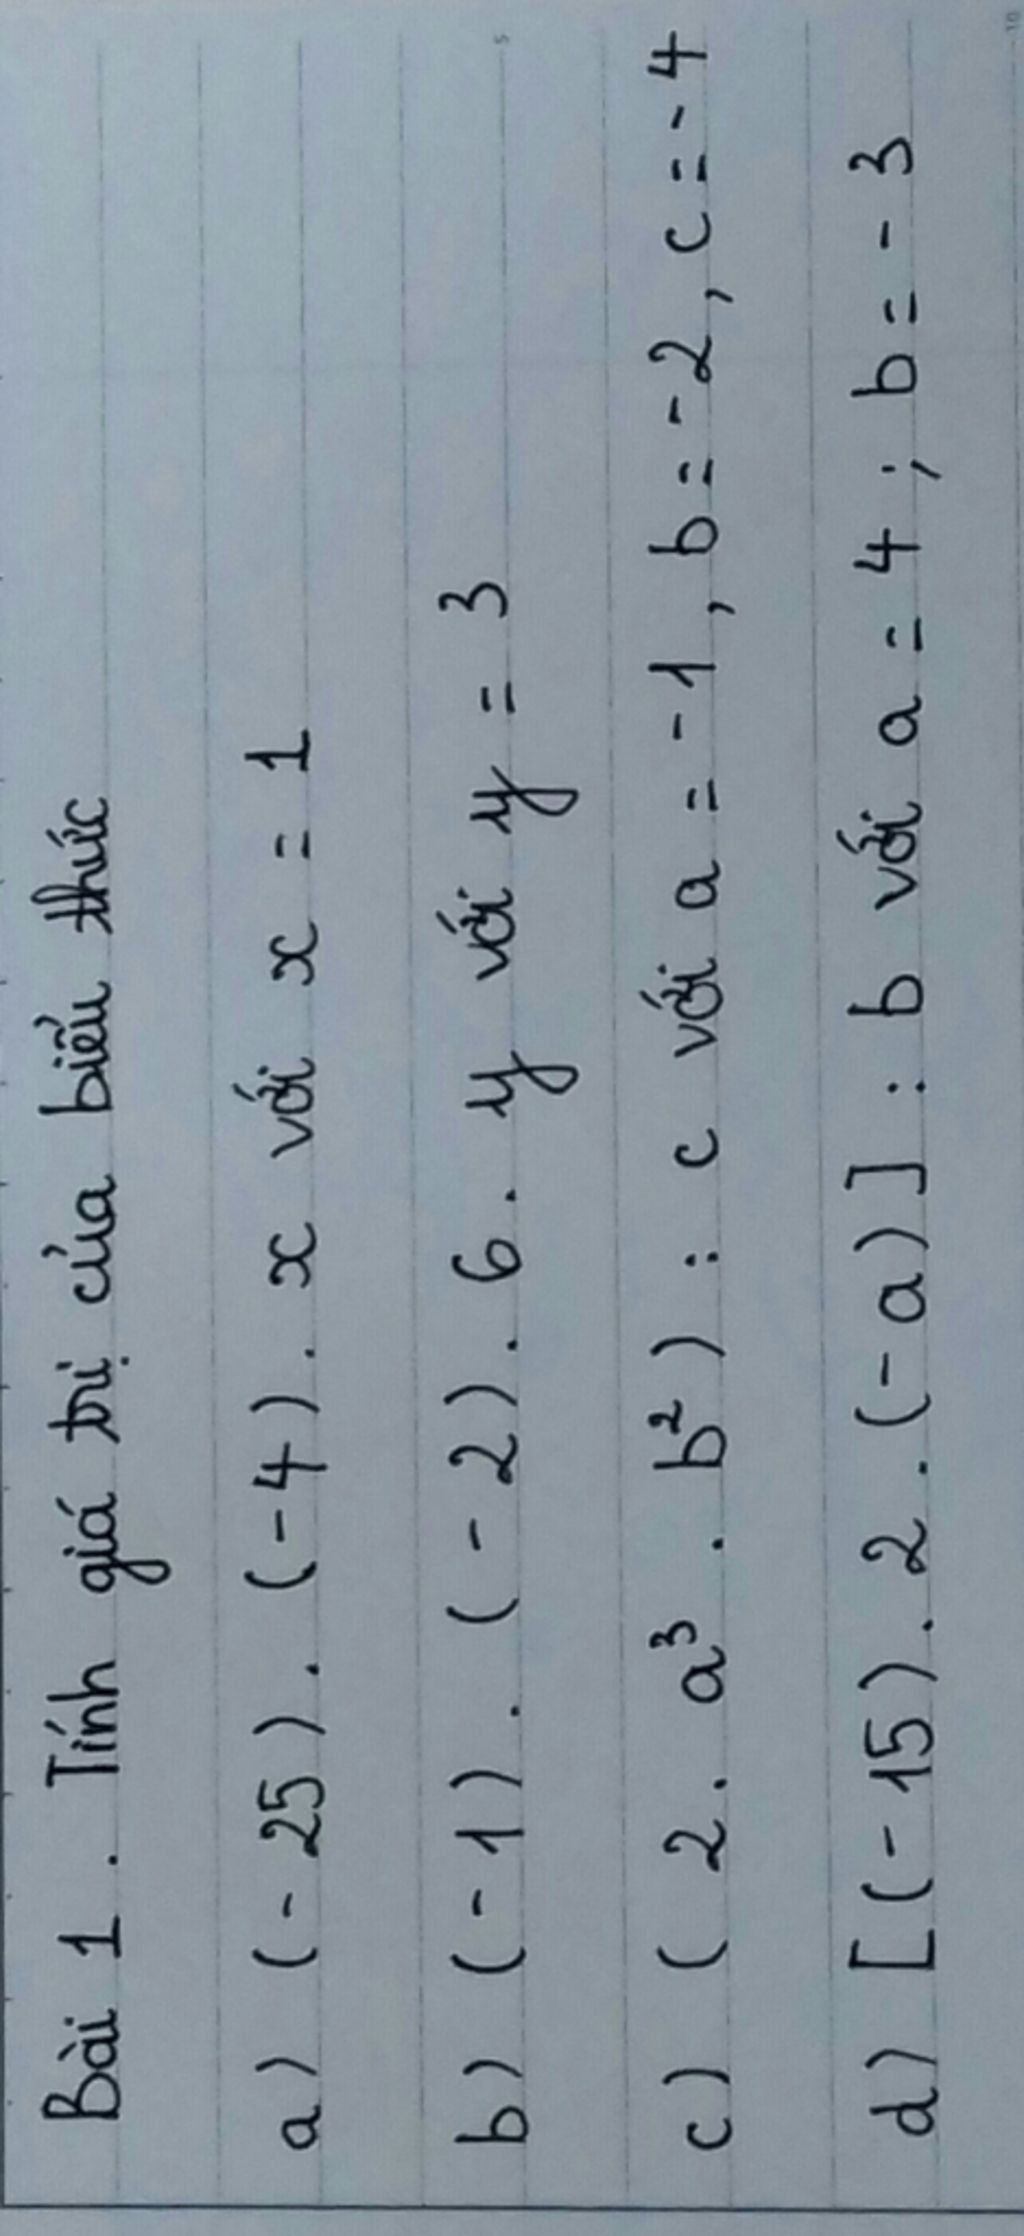 Bài 1. Tính giá trị của biểu thức
a) (-25). (-4). x với x = 1
b) (-1). (-2). 6. y với y = 3
c) (2. a³. b²) : c với a = -1, b = -2, c = -4
d) [(-15). 2. (-a)] : b với a = 4; b = -3